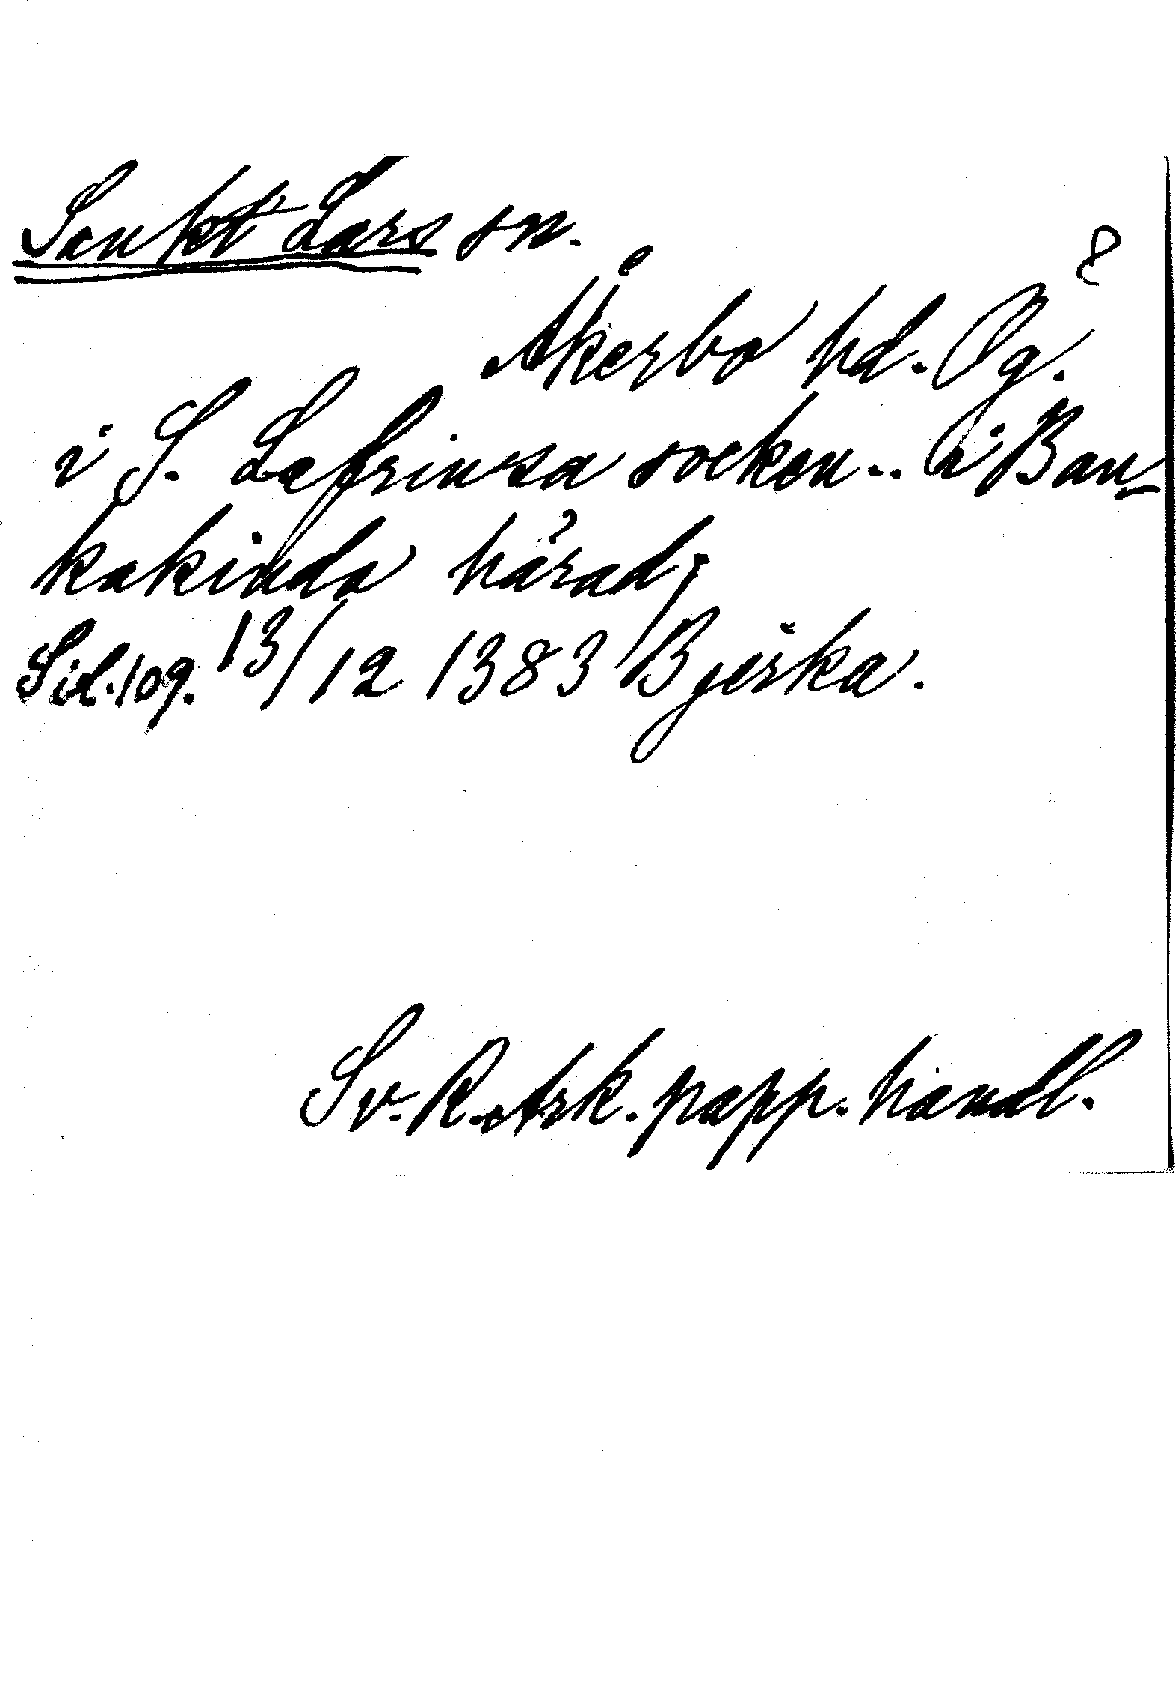 Sankt Lars sn.
8
Åkerbo hd. Ög.
i S. Lafrinsa sockon.. i Ban-
kakinda härad;
Sil. 109. 13/12 1383 Bjerka.
Sv. R. Ark. papp. handl.